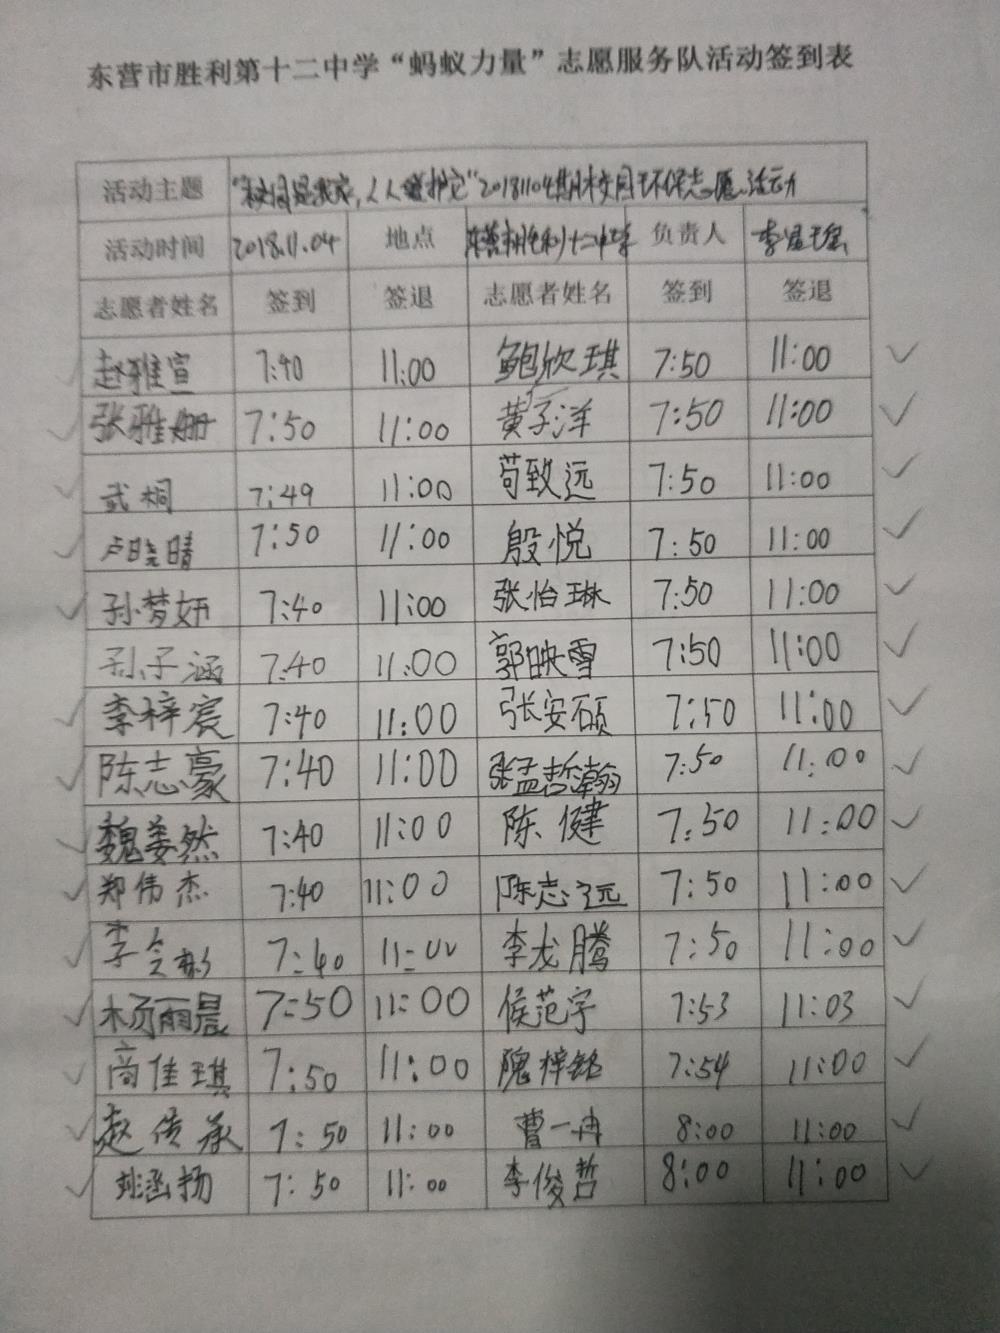 东营市胜利第十二中学“蚂蚁力量”志愿服务队活动签到表
活动主题 “校园是我家,人人爱护它”20181104期校园环保志愿活动
活动时间 2018.11.04 地点 东营市胜利十二中学 负责人
志愿者姓名 签到 签退 志愿者姓名 签到 签退
赵雅宣 7:40 11:00 鲍欣琪 7:50 11:00
张雅姗 7:50 11:00 黄子洋 7:50 11:00
武桐 7:49 11:00 苟致远 7:50 11:00
卢晓晴 7:50 11:00 殷悦 7:50 11:00
孙梦妍 7:40 11:00 张怡琳 7:50 11:00
孙子涵 7:40 11:00 郭映雪 7:50 11:00
李梓宸 7:40 11:00 张安硕 7:50 11:00
陈志豪 7:40 11:00 张孟哲瀚 7:50 11:00
魏姜然 7:40 11:00 陈健 7:50 11:00
郑伟杰 7:40 11:00 陈志远 7:50 11:00
李 7:40 11:00 李龙腾 7:50 11:00
杨雨晨 7:50 11:00 侯范宇 7:53 11:03
商佳琪 7:50 11:00 隗梓铭 7:54 11:00
赵传承 7:50 11:00 曹一冉 8:00 11:00
姚函扬 7:50 11:00 李俊哲 8:00 11:00